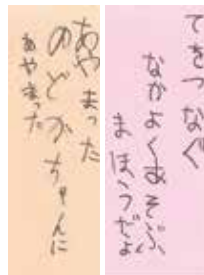 てをつなぐ
なかよくあそぶ、
まほうだよ
あやまった
のどかちゃんに
あやまった